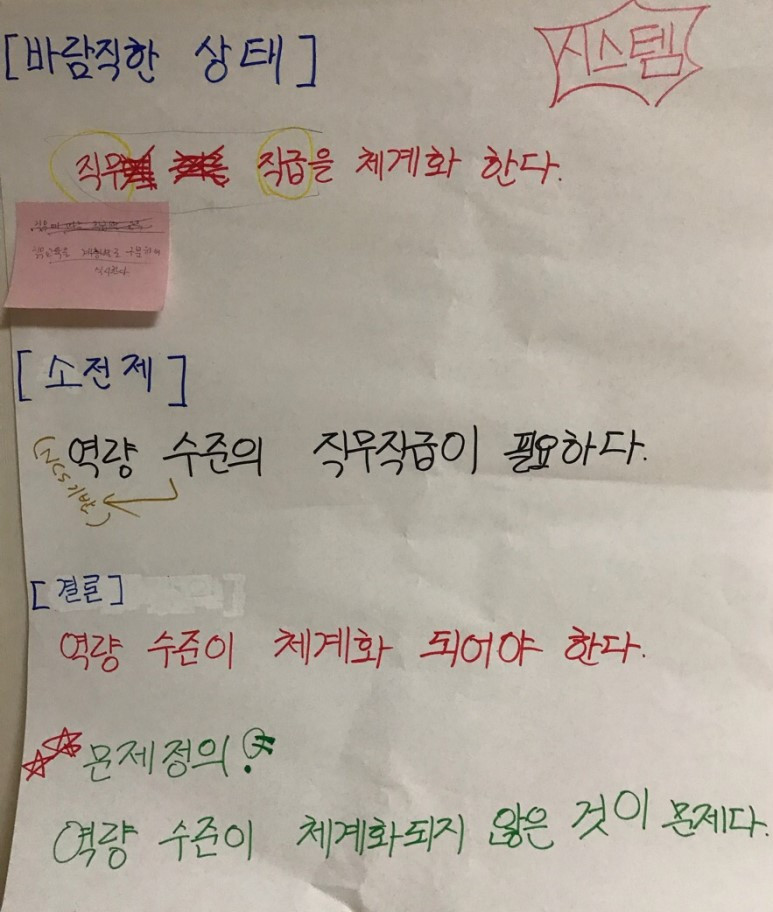 [바람직한 상태]
시스템
직무 직급을 체계화 한다.
[소전제]
역량 수준의 직무직급이 필요하다.
(NCS기반)
[결론]
역량 수준이 체계화 되어야 한다.
문제정의?
역량 수준이 체계화되지 않은 것이 문제다.